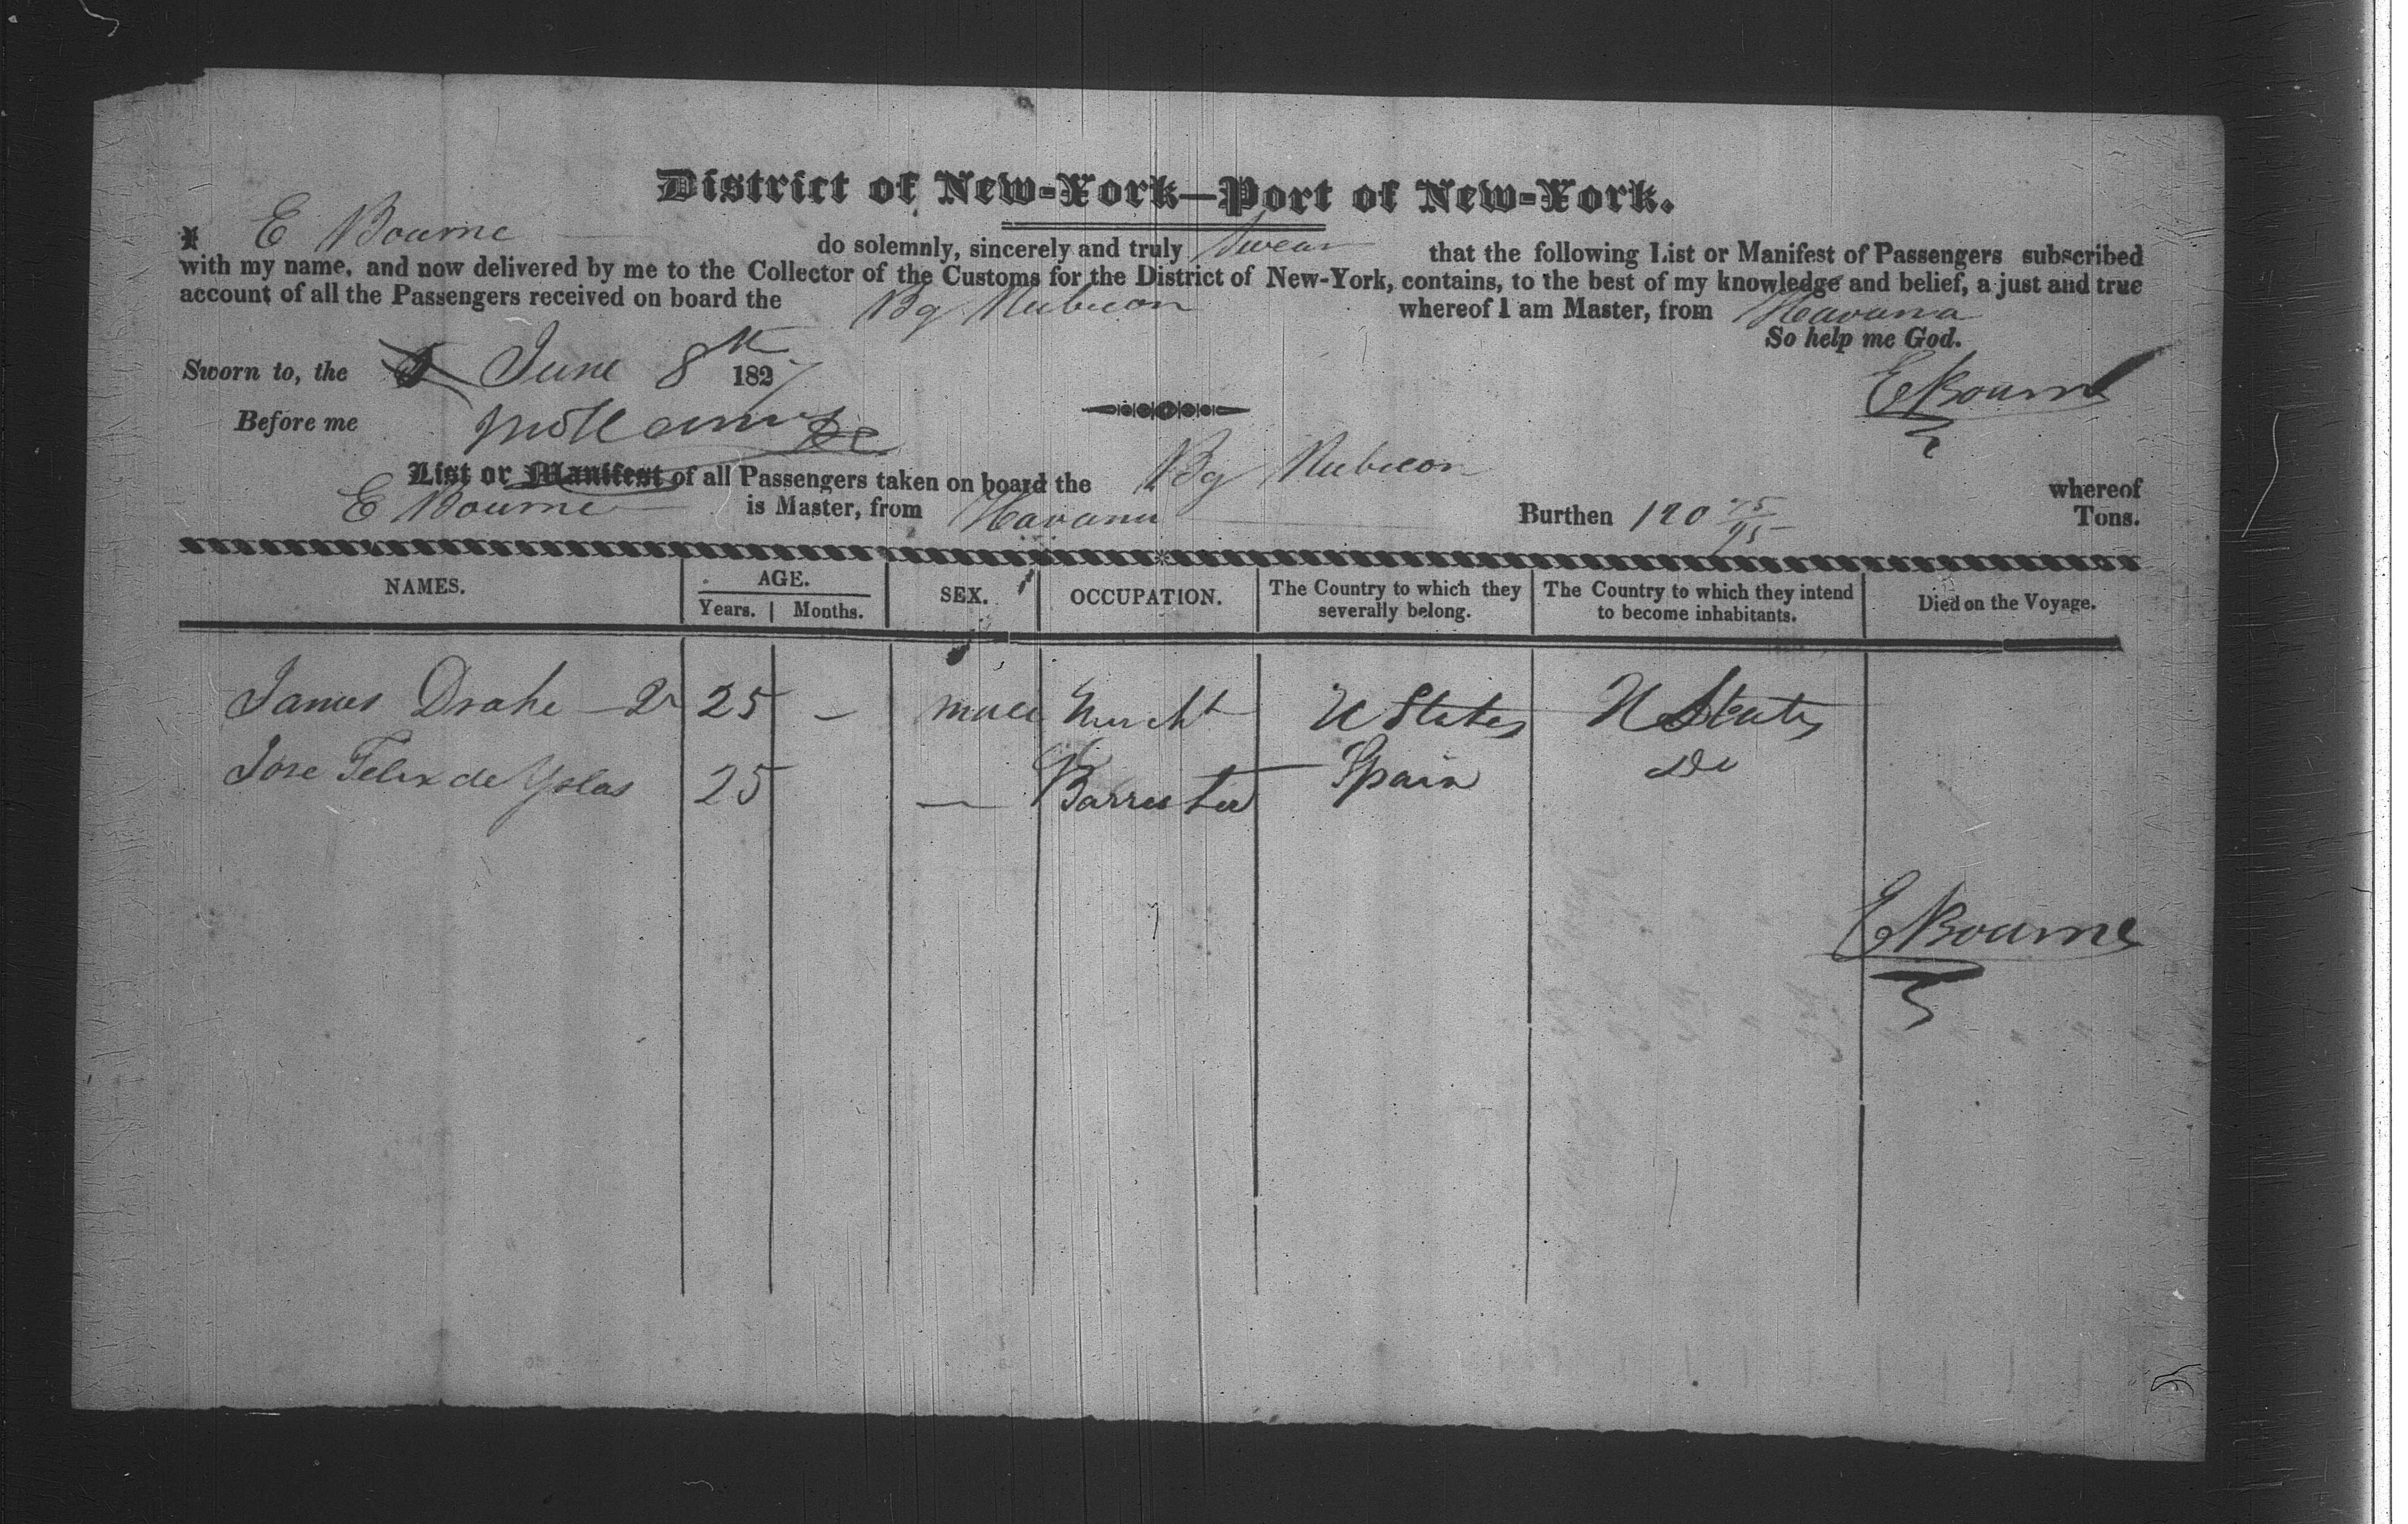 District of New-York—Port of New-York.
I E Bourne do solemnly, sincerely and truly Swear that the following List or Manifest of Passengers subscribed
with my name, and now delivered by me to the Collector of the Customs for the District of New-York, contains, to the best of my knowledge and belief, a just and true
account of all the Passengers received on board the Bg Rubicon whereof I am Master, from Havana
So help me God.
Sworn to, the June 8th 1827
E Bourne
Before me
List or Manifest of all Passengers taken on board the Bg Rubicon whereof
E Bourne is Master, from Havana Burthen 120 Tons.
NAMES. AGE. SEX. OCCUPATION. The Country to which they severally belong. The Country to which they intend to become inhabitants. Died on the Voyage.
Years. Months.
James Drake 25 — male Mercht U States U States
Jose Felix de Yslas 25 — Barrister Spain Do
E Bourne